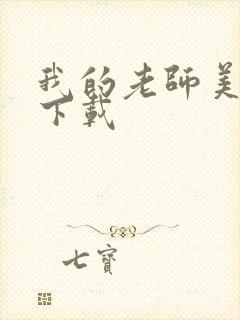 我的老師美
下載
七寶